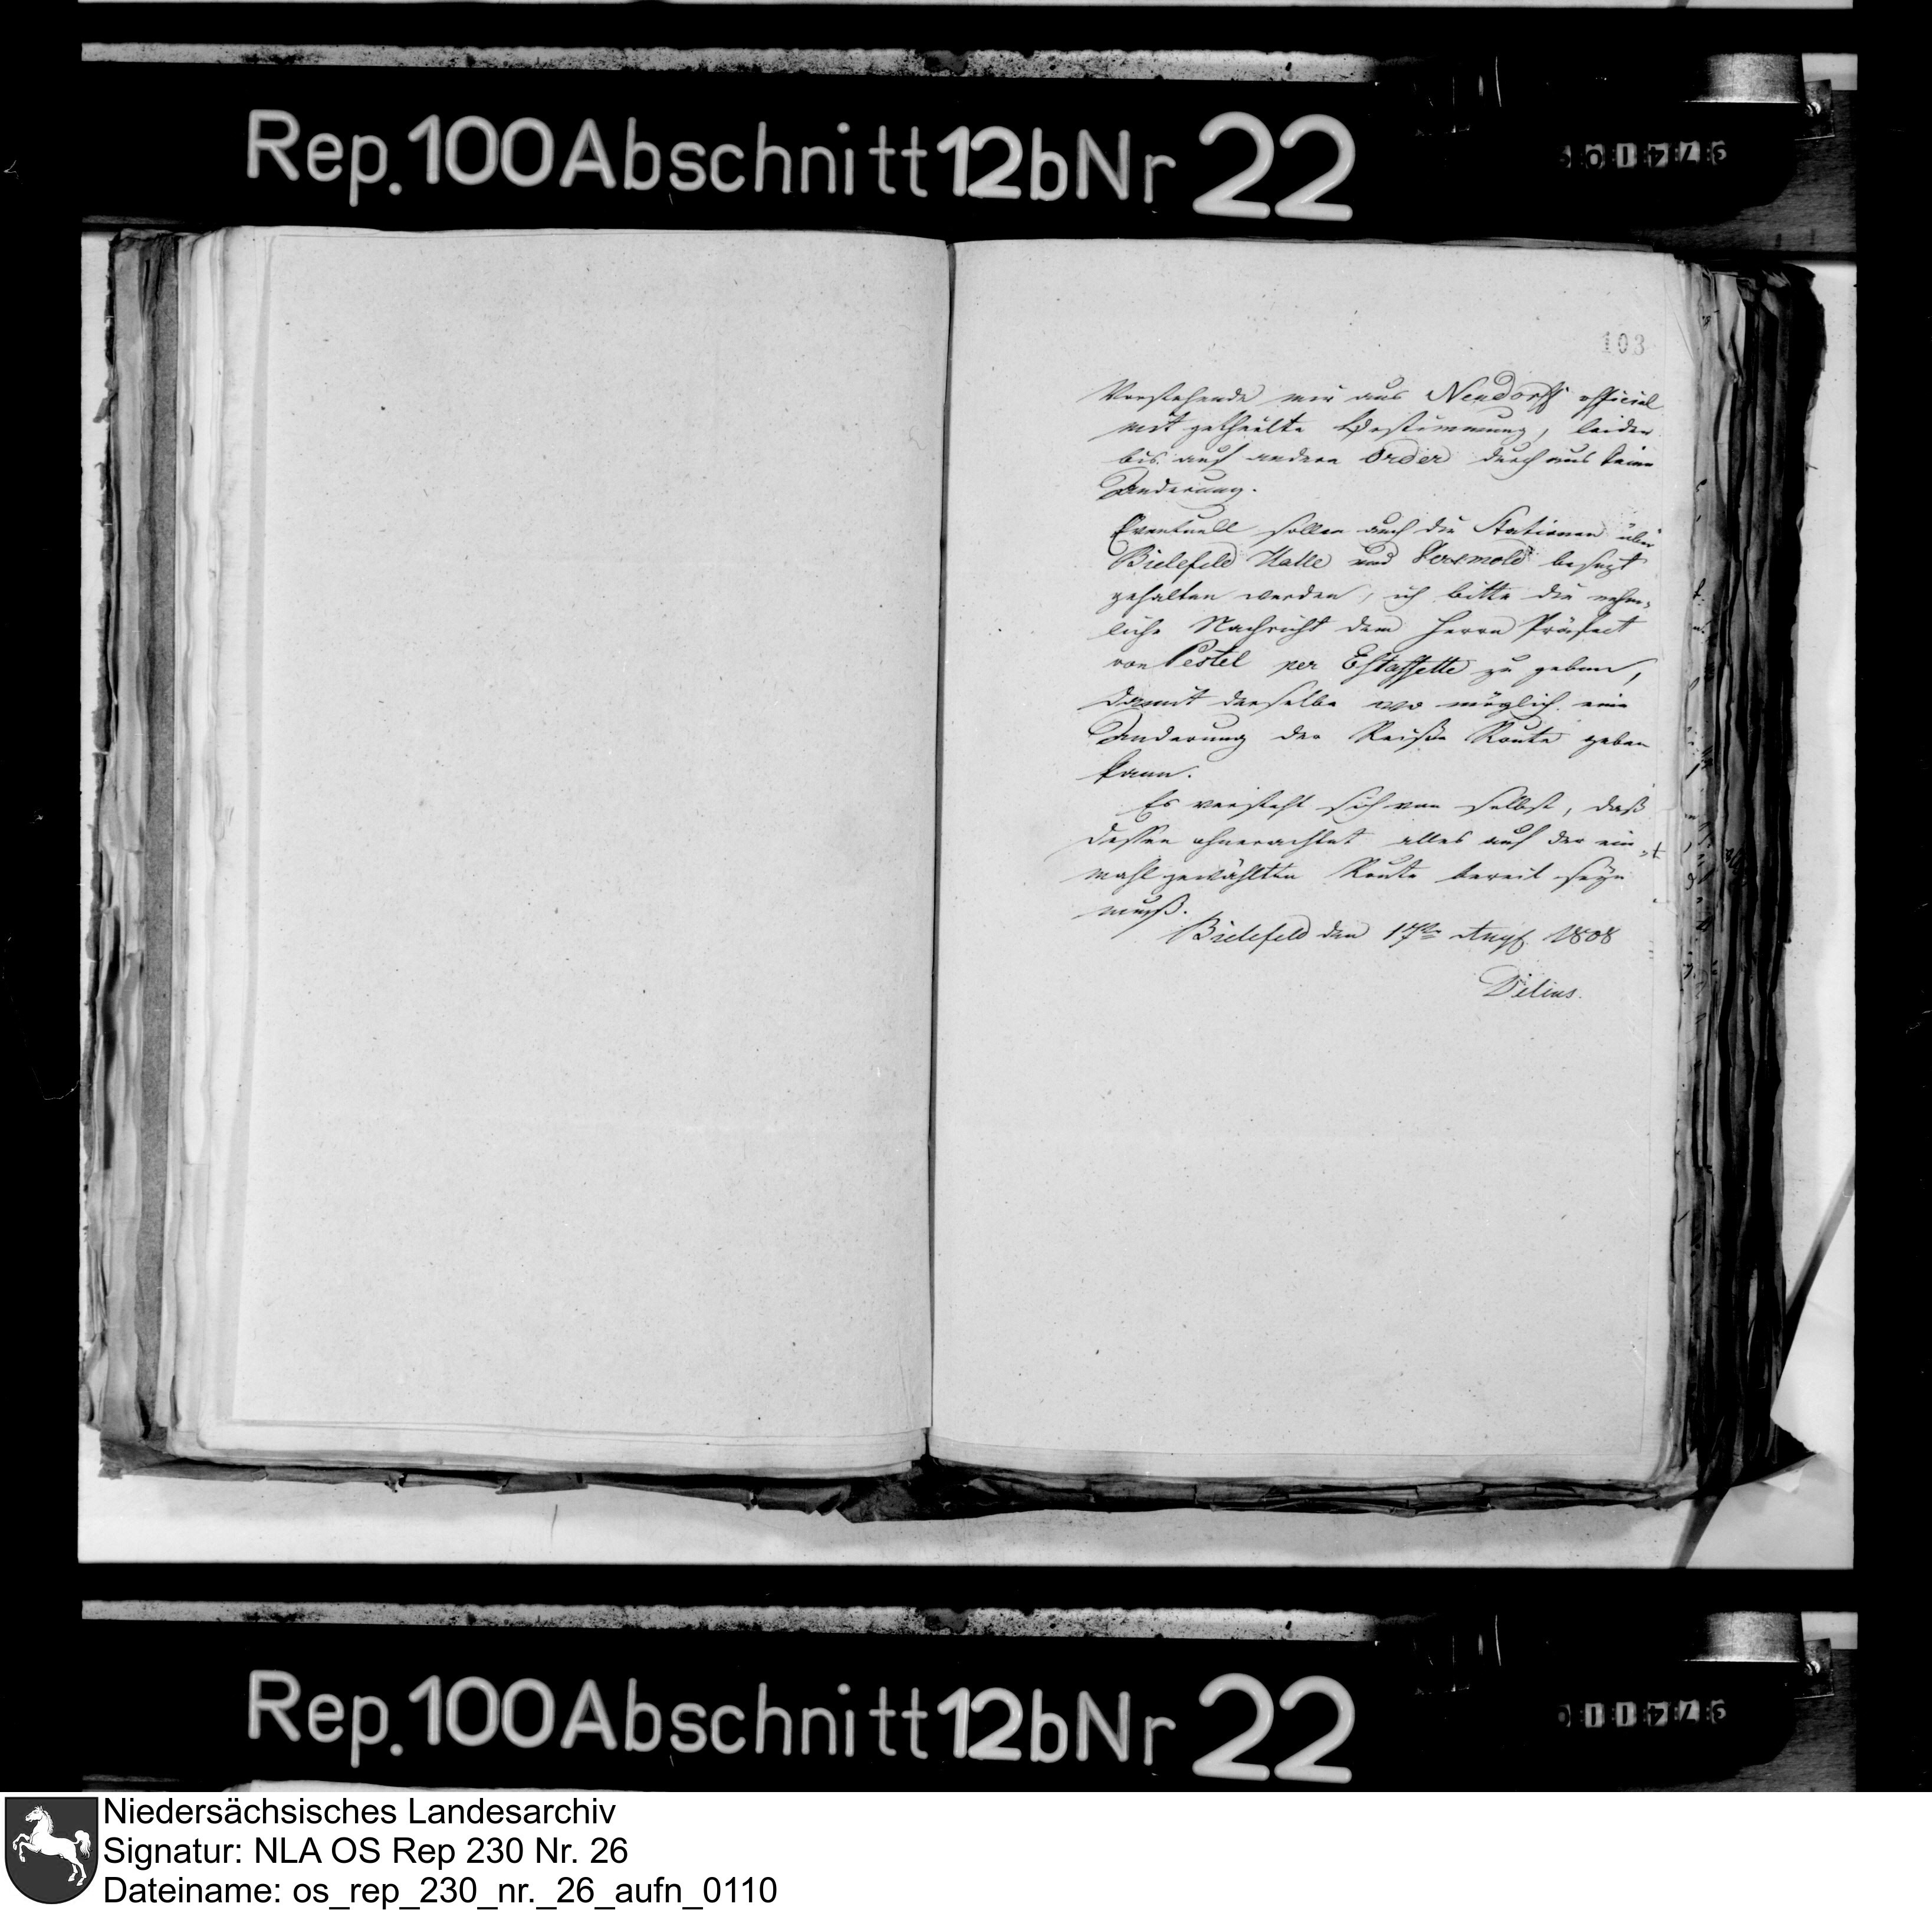 Rep. 100 Abschnitt 12b Nr 22
103
Vorstehende mir aus Nendorff officiel
mit getheilte Bestimmung, leidet
bis auf andere Order durchaus keine
Änderung.
Eventuell sollen auch die Stationen über
Bielefeld Halle und Versmold besezt
gehalten werden, ich bitte die nehm-
liche Nachricht dem Herrn Präfect
von Pestel per Estaffette zu geben,
damit derselbe wo möglich eine
Änderung der Reise Route geben
kann.
Es versteht sich von selbst, daß
dessen ohnerachtet alles auf der ein-
mahl gewählten Route bereit seyn
muß.
Bielefeld den 17ten Aug. 1808
Delius.
Rep. 100 Abschnitt 12b Nr 22
Niedersächsisches Landesarchiv
Signatur: NLA OS Rep 230 Nr. 26
Dateiname: os_rep_230_nr._26_aufn_0110